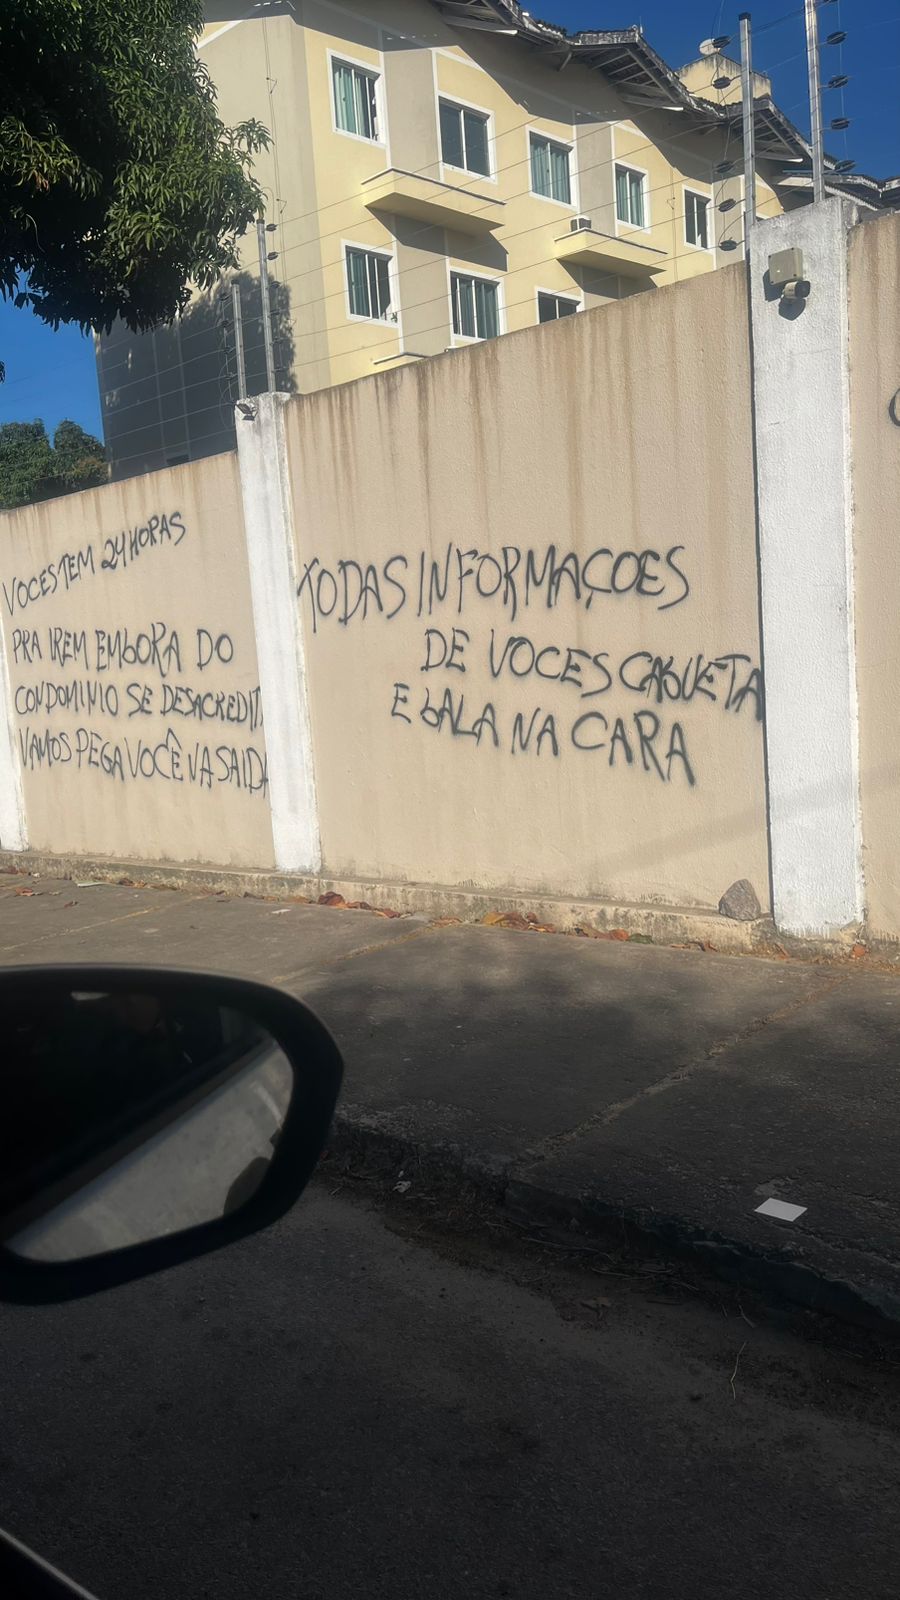 VOCES TEM 24 HORAS
PRA IREM EMBORA DO
CONDOMINIO SE DESACREDIT
VAMOS PEGA VOCÊ NA SAIDA
TODAS INFORMAÇOES
DE VOCES CAGUETA
E BALA NA CARA